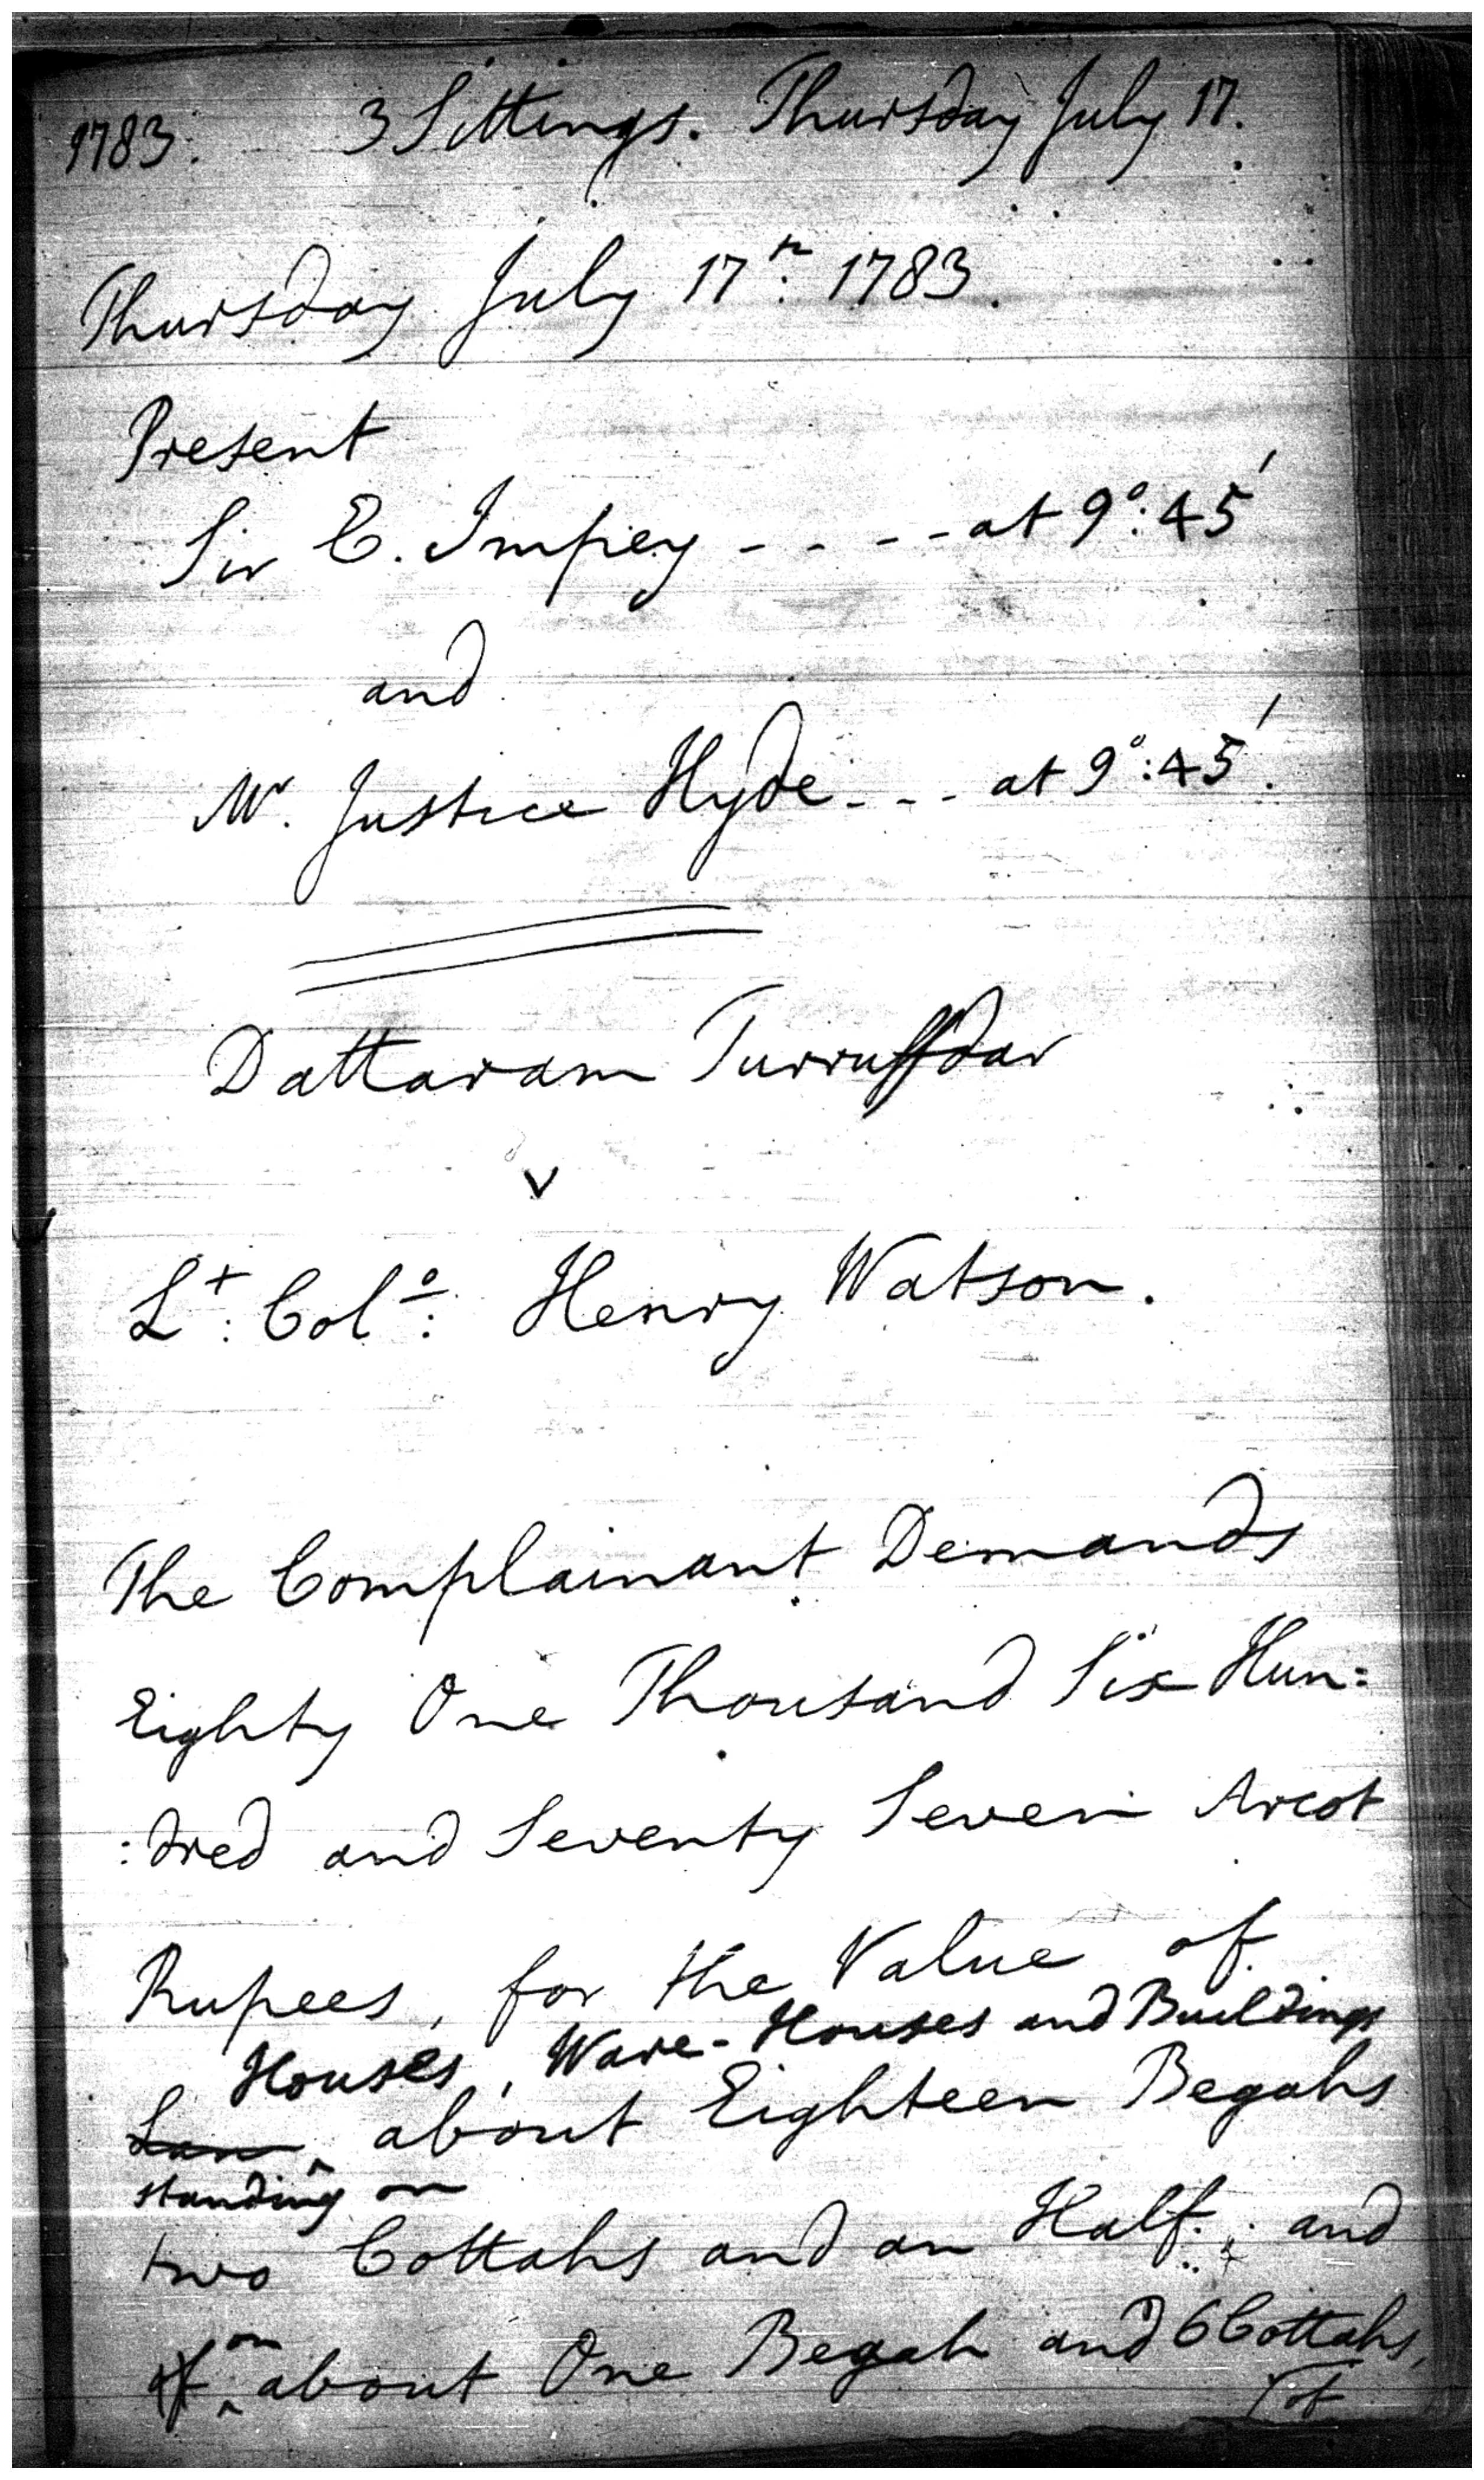 1783. 3 Sittings. Thursday July 17.
Thursday July 17th: 1783.
Present
Sir E. Impey - - - - at 9°: 45'
and
Mr. Justice Hyde - - - at 9°: 45'.
Dattaram Turruffdar
v
Lt: Colo: Henry Watson.
The Complainant Demands
Eighty One Thousand Six Hun:
:dred and Seventy Seven Arcot
Rupees, for the Value of
Houses, Ware-Houses and Buildings
Lan ^ about Eighteen Begahs
standing on
two Cottahs and an Half: and
on
of ^ about One Begah and 6 Cottahs,
of